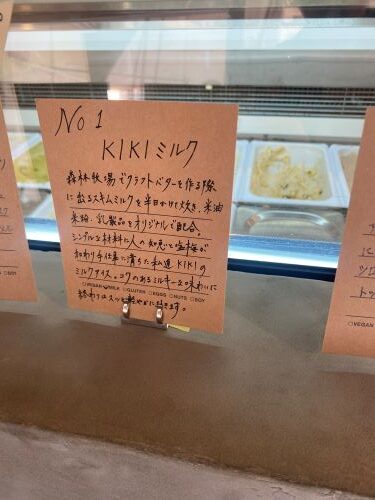 No 1
KIKIミルク
森林牧場でクラフトバターを作る際
に出るスキムミルクを半日かけて炊き、米油
米飴、乳製品をオリジナルで配合。
シンプルな材料に人の知恵と塩梅が
加わり手仕事に満ちた私達KIKIの
ミルクアイス。コクのあるミルキーな味わいに
○VEGAN ○MILK ○GLUTEN ○EGGS ○NUTS ○SOY
終わりはスッと軽やかに引きます。
○SOY
○VEGAN